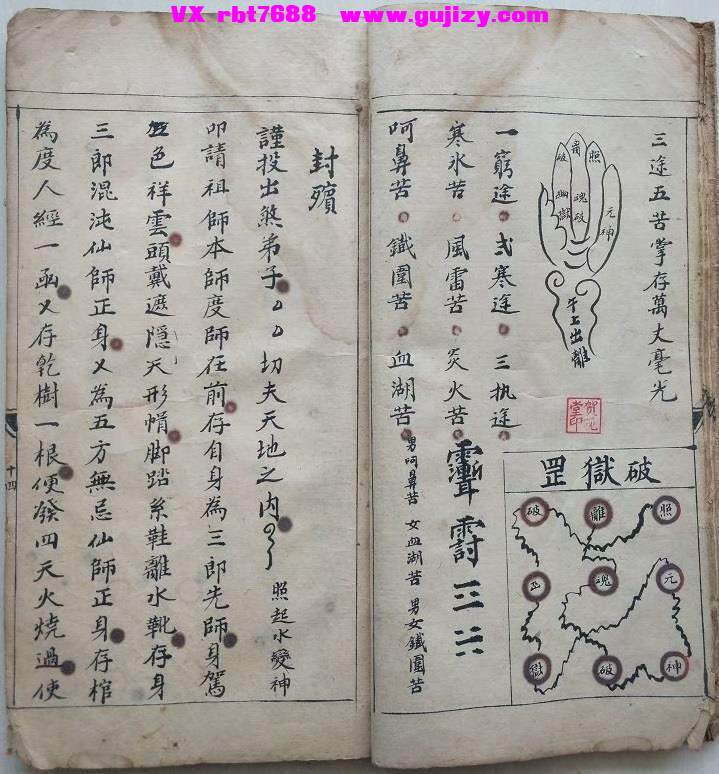 VX-rbt7688 www.gujizy.com
三途五苦掌存萬丈毫光
照
破
元神
魂
破
午上出離
破獄罡
照 離 破
元 魂 丞
神 破 獄
一窮途 弍寒途 三执途
寒氷苦 風雷苦 炎火苦
呵鼻苦 鐵圍苦 血湖苦
男呵鼻苦 女血湖苦 男女鐵圍苦
封殯
謹投出煞弟子厶厶切夫天地之内 照起水變神
叩請祖師本師度師在前存自身為三郎先師身駕
五色祥雲頭戴遮隱天形帽脚踏糸鞋離水靴存身
三郎混沌仙師正身又為五方無忌仙師正身存棺
為度人經一函又存乾樹一根便發四天火燒過使
十四